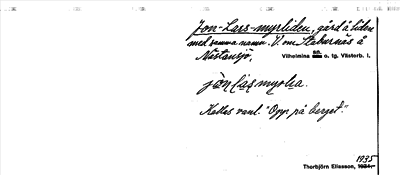 Jon-Lars-myrliden, gård å liden
med samma namn. V. om Stabursnäs å
Nästansjö, Vilhelmina sn. o. tg. Västerb. l.
jòn lás myrlıa.
Kallas vanl. "Opp på berget".
1935
Thorbjörn Eliasson, 1934.